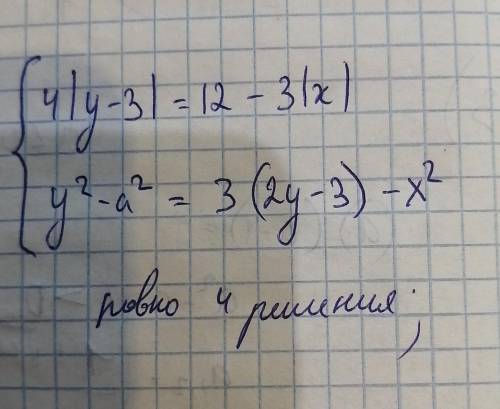 4|y-3| = 12 - 3|x|
y² - a² = 3(2y-3) - x²
ровно 4 решения;